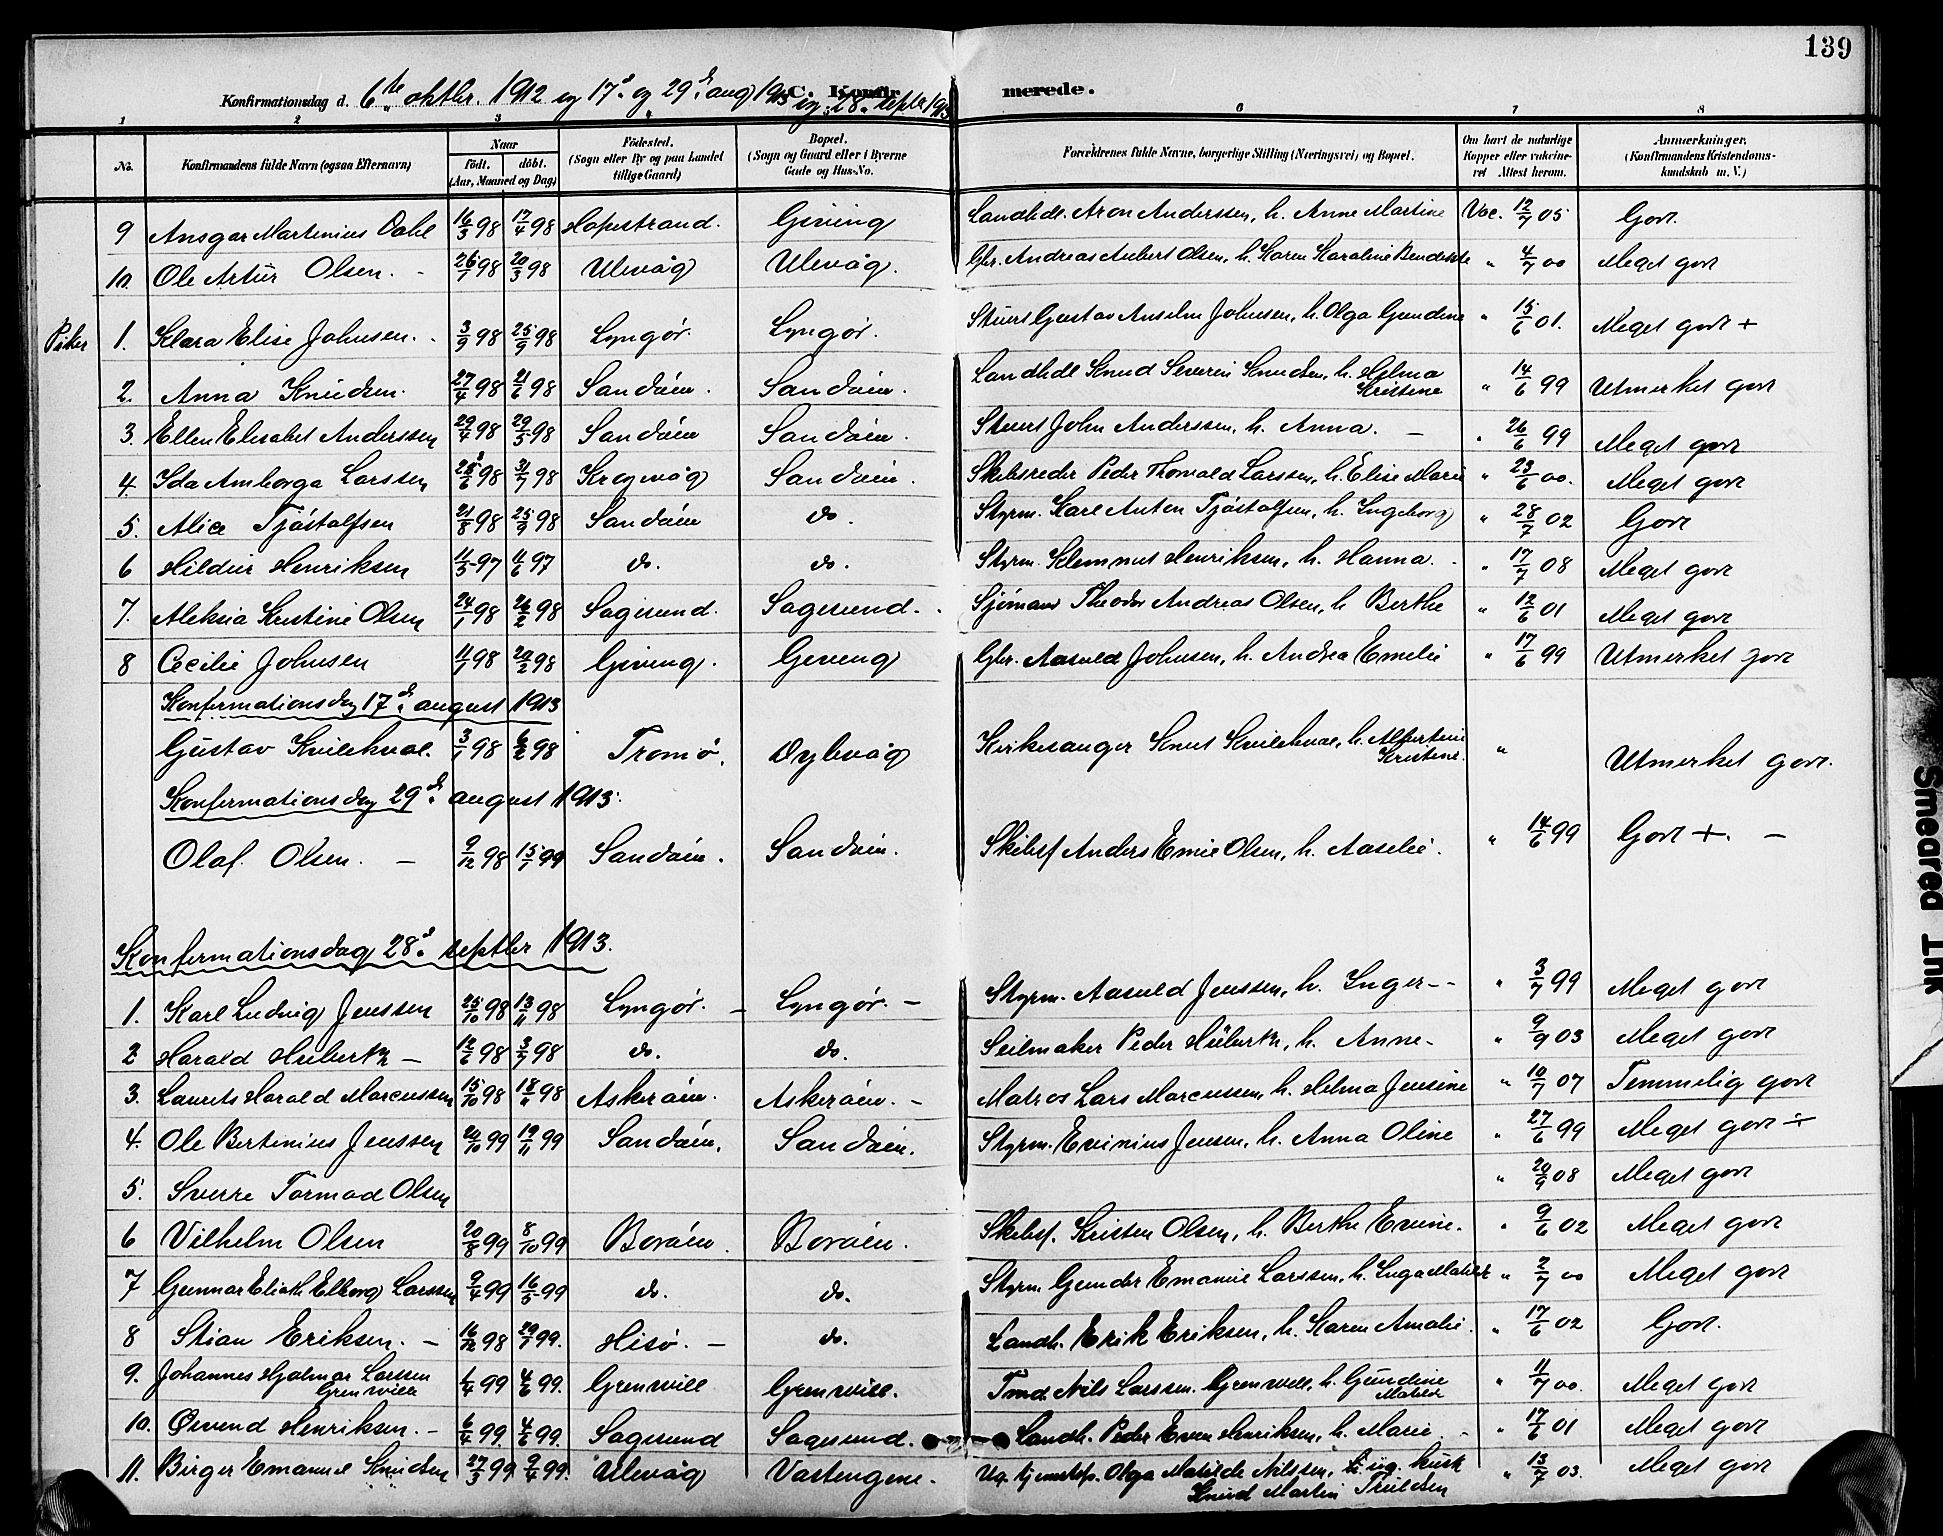 139
Konfirmationsdag d. 6te oktbr. 1912 og 17d. og 29d. aug 1913 og 28. septbr 1913
C. Konfirmerede.
1 2 3 6 7 8
No. Konfirmandens fulde Navn (ogsaa Efternavn) Naar födt. döbt. (Aar, Maaned og Dag) Födested. (Sogn eller By og paa Landet tillige Gaard) Bopæl. (Sogn og Gaard eller i Byerne Gade og Hus-No. Forældrenes fulde Navne, borgerlige Stilling (Næringsvei) og Bopæl. Om havt de naturlige Kopper eller vakcineret Attest herom. Anmærkninger. (Konfirmandens Kristendomskundskab m. V.)
9 Ansgar Martinius Dahl 16/3 98 17/4 98 Hopestrand. Giving Landhdl. Aron Anderssen, h. Anne Martine Vac. 12/7 05 Godt.
10. Ole Artur Olsen. - 26/1 98 20/3 98 Ulevåg Ulevåg. Gbr. Andreas Aubert Olsen, h. Karen Karoline " 4/7 00 Meget godt
Piker 1. Klara Elise Johnsen. 3/9 98 25/9 98 Lyngör. Lyngör. Stuert Gustav Anselm Johnsen, h. Olga Gundine " 15/6 01. Meget godt +
2. Anna Knudsen. 27/4 98 21/6 98 Sandöien. Sandöien. Landhdl Knud Severin Knudsen, h. Helma Kristine " 14/6 99 Utmerket godt
3. Ellen Elisabet Anderssen 29/4 98 29/5 98 Sandöien Sandöien. Stuert John Anderssen, h. Anna. - " 26/6 99 Meget godt
4. Ida Amborga Larssen 98 31/7 98 Sandöien. Skibsreder Peder Thorvald Larssen, h. Elise Marie " 23/6 00. Meget godt
5. Alice Tjöstolfsen 21/8 98 25/9 98 Sandöien do. Styrm. Karl Anton Tjöstolfsen, h. Ingeborg " 28/7 02 Godt
6 Hildur Henriksen 11/5 97 11/6 97 do. do. Styrm. Klemmet Henriksen, h. Hanna. " 17/7 08 Meget godt
7. Aleksia Kristine Olsen 24/1 98 26/2 98 Sagesund. Sagesund. Sjömand Theodor Andreas Olsen, h Berthe " 12/6 01 Meget godt
8 Cecilie Johnsen 11/1 98 20/2 98 Giving. Geving Gbr. Aasuld Johnsen, h. Andrea Emelie " 17/6 99 Utmerket godt
Konfirmationsdag 17d. august 1913
Gustav Kvilekval. 3/1 98 6/2 98 Tromö. Dybvåg Kirkesanger Knut Kvilekval, h. Albertine Kristine. " Utmerket godt.
Konfirmationsdag 29d. august 1913.
Olaf. Olsen. - 9/12 98 15/1 99 Sandöien. Sandöien. Skibsf Anders Emil Olsen, h. Aaselie. " 14/6 99 Godt +. -
Konfirmationsdag 28d. septbr 1913.
1. Karl Ludvig Jenssen 25/10 98 13/11 98 Lyngör. - Lyngör. - Styrm. Aasuld Jenssen, h. Inger - - " 3/7 99 Meget godt
2 Harald Hubertz - 12/6 98 3/7 98 do. do. Seilmaker Peder Hübertz, h. Anne - " 9/9 03 Meget godt
3. Laurits Harald Marcussen 15/10 98 18/11 98 Askeröien. Askeröien. - Matros Lars Marcussen, h. Helma Jensine " 10/7 07 Temmelig godt
4. Ole Bertinius Jenssen 20/10 99 19/11 99 Sandöien. Sandöien. Styrm. Evinius Jensen, h. Anna Oline " 27/6 99 Meget godt ÷
5. Sverre Tormod Olsen " 20/9 08 Meget godt
6 Vilhelm Olsen 20/8 99 8/10 99 Boröien. Boröien. Skibsf. Kristen Olsen, h. Berthe Evine. " 9/6 02 Meget godt
7 Gunnar Eliath Elborg Larssen 9/4 99 16/5 99 do. do. Styrm. Gunder Emanuel Larssen, h. Inga Matilde " 2/7 00 Meget godt
8 Stian Eriksen. - 16/12 98 99. Hisö. - do. Landh. Erik Eriksen, h. Karen Amalie. " 17/6 02 Godt.
9. Johannes Hjalmar Larssen Grenwill 1/4 99 4/6 99. Grenwill Grenwill. Tmd. Nils Larssen Grenwill, h. Gundine Matilde " 11/7 00. Meget godt
10. Övend Henriksen. - 6/4 99. 4/6 99. Sagesund Sagesund. Landh. Peder Even Henriksen, h. Marie. " 17/6 01 Meget godt
11. Birger Emanuel Knudsen 27/3 99 9/4 99. Ulevåg Vastengene. Ug. tjenestep. Olga Matilde Nilssen, h. ug. Knud Martin Truldsen " 13/7 03. Meget godt
Smeared Ink